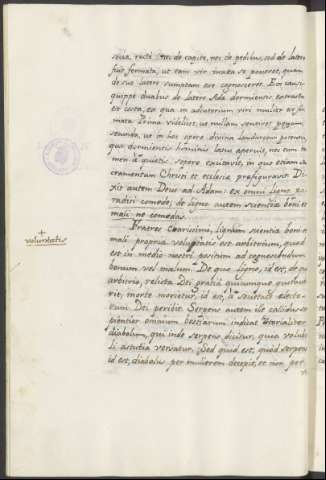 sua, facti nec de capite, nec de pedibus, sed de latere
fuit formata, ut eam vir amaturus se poneret, quam
de suo latere sumptam esse cognosceret. Et causa
quippe duabus de latere Adæ dormientis extracta
est costa, ex qua in adiutorium viri mulier est for
mata. Prima videlicet, ut nullam sentiret pœnam,
secunda, ut in hoc opere divina laudaretur potentia,
quæ dormientis hominis latus aperuit, nec eum ta
men à quietis sopore excitavit, in quo etiam sa
cramentum Christi et ecclesiæ prefiguravit. Di
xit autem Deus ad Adam: ex omni ligno pa
radisi comede, de ligno autem scientiæ boni et
mali ne comedas.
Fratres Charissimi, lignum scientiæ boni et
mali propriæ voluptatis est arbitrium, quod
est in medio nostri positum ad cognoscendum
bonum vel malum. De quo ligno, id est, de quo
arbitrio, relicta Dei gratia quicumque gustave
rit, morte morietur, id est, à societate electo
rum Dei peribit. Serpens autem ille callidus sa
pientior omnium bestiarum indicat
diabolum, qui inde serpens dicitur, quia volubi
li astutia versatur. Sed quid est, quod serpens
id est, diabolus per mulierem decepit, et non per
+
voluntatis